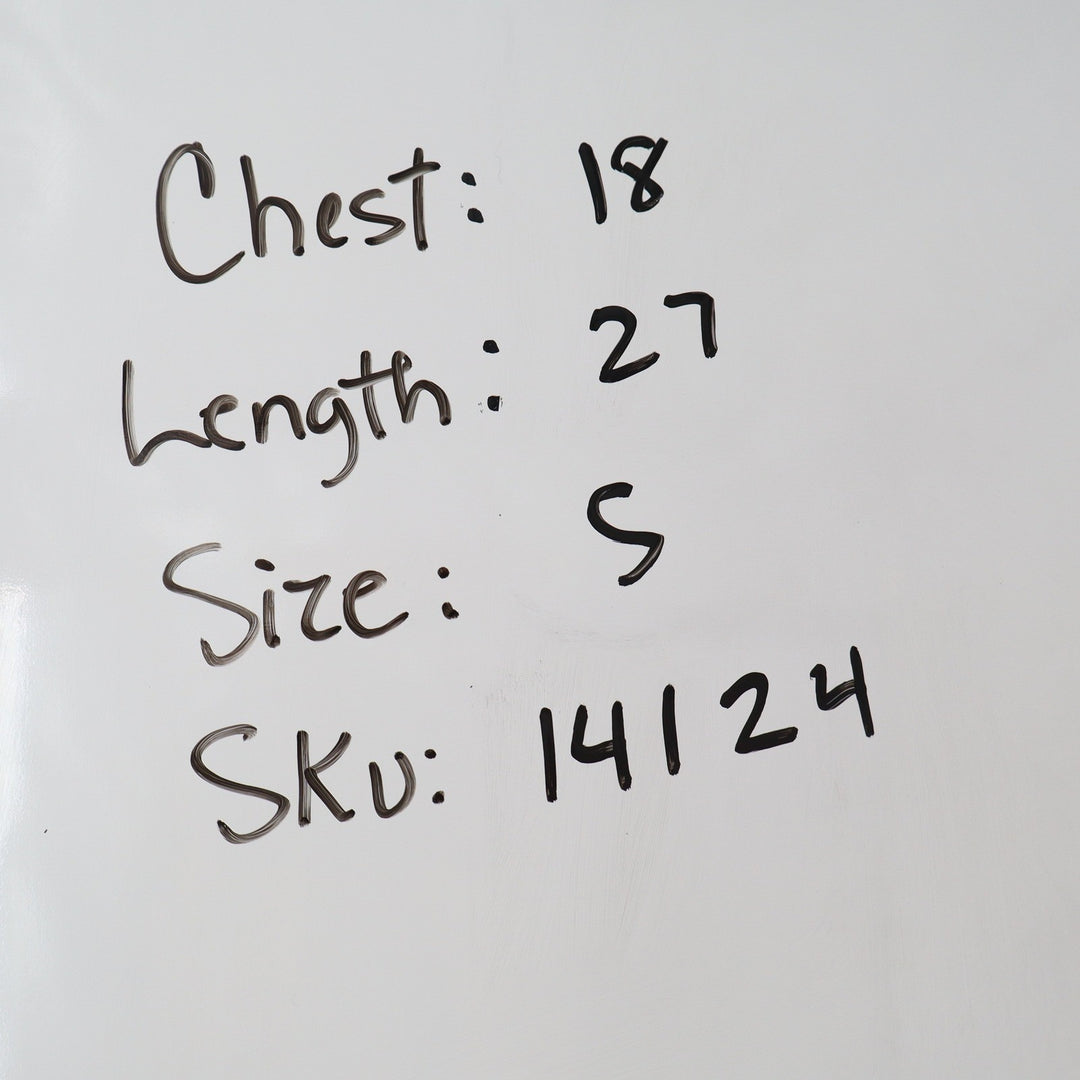 Chest: 18
Length: 27
Size: S
SKU: 14124